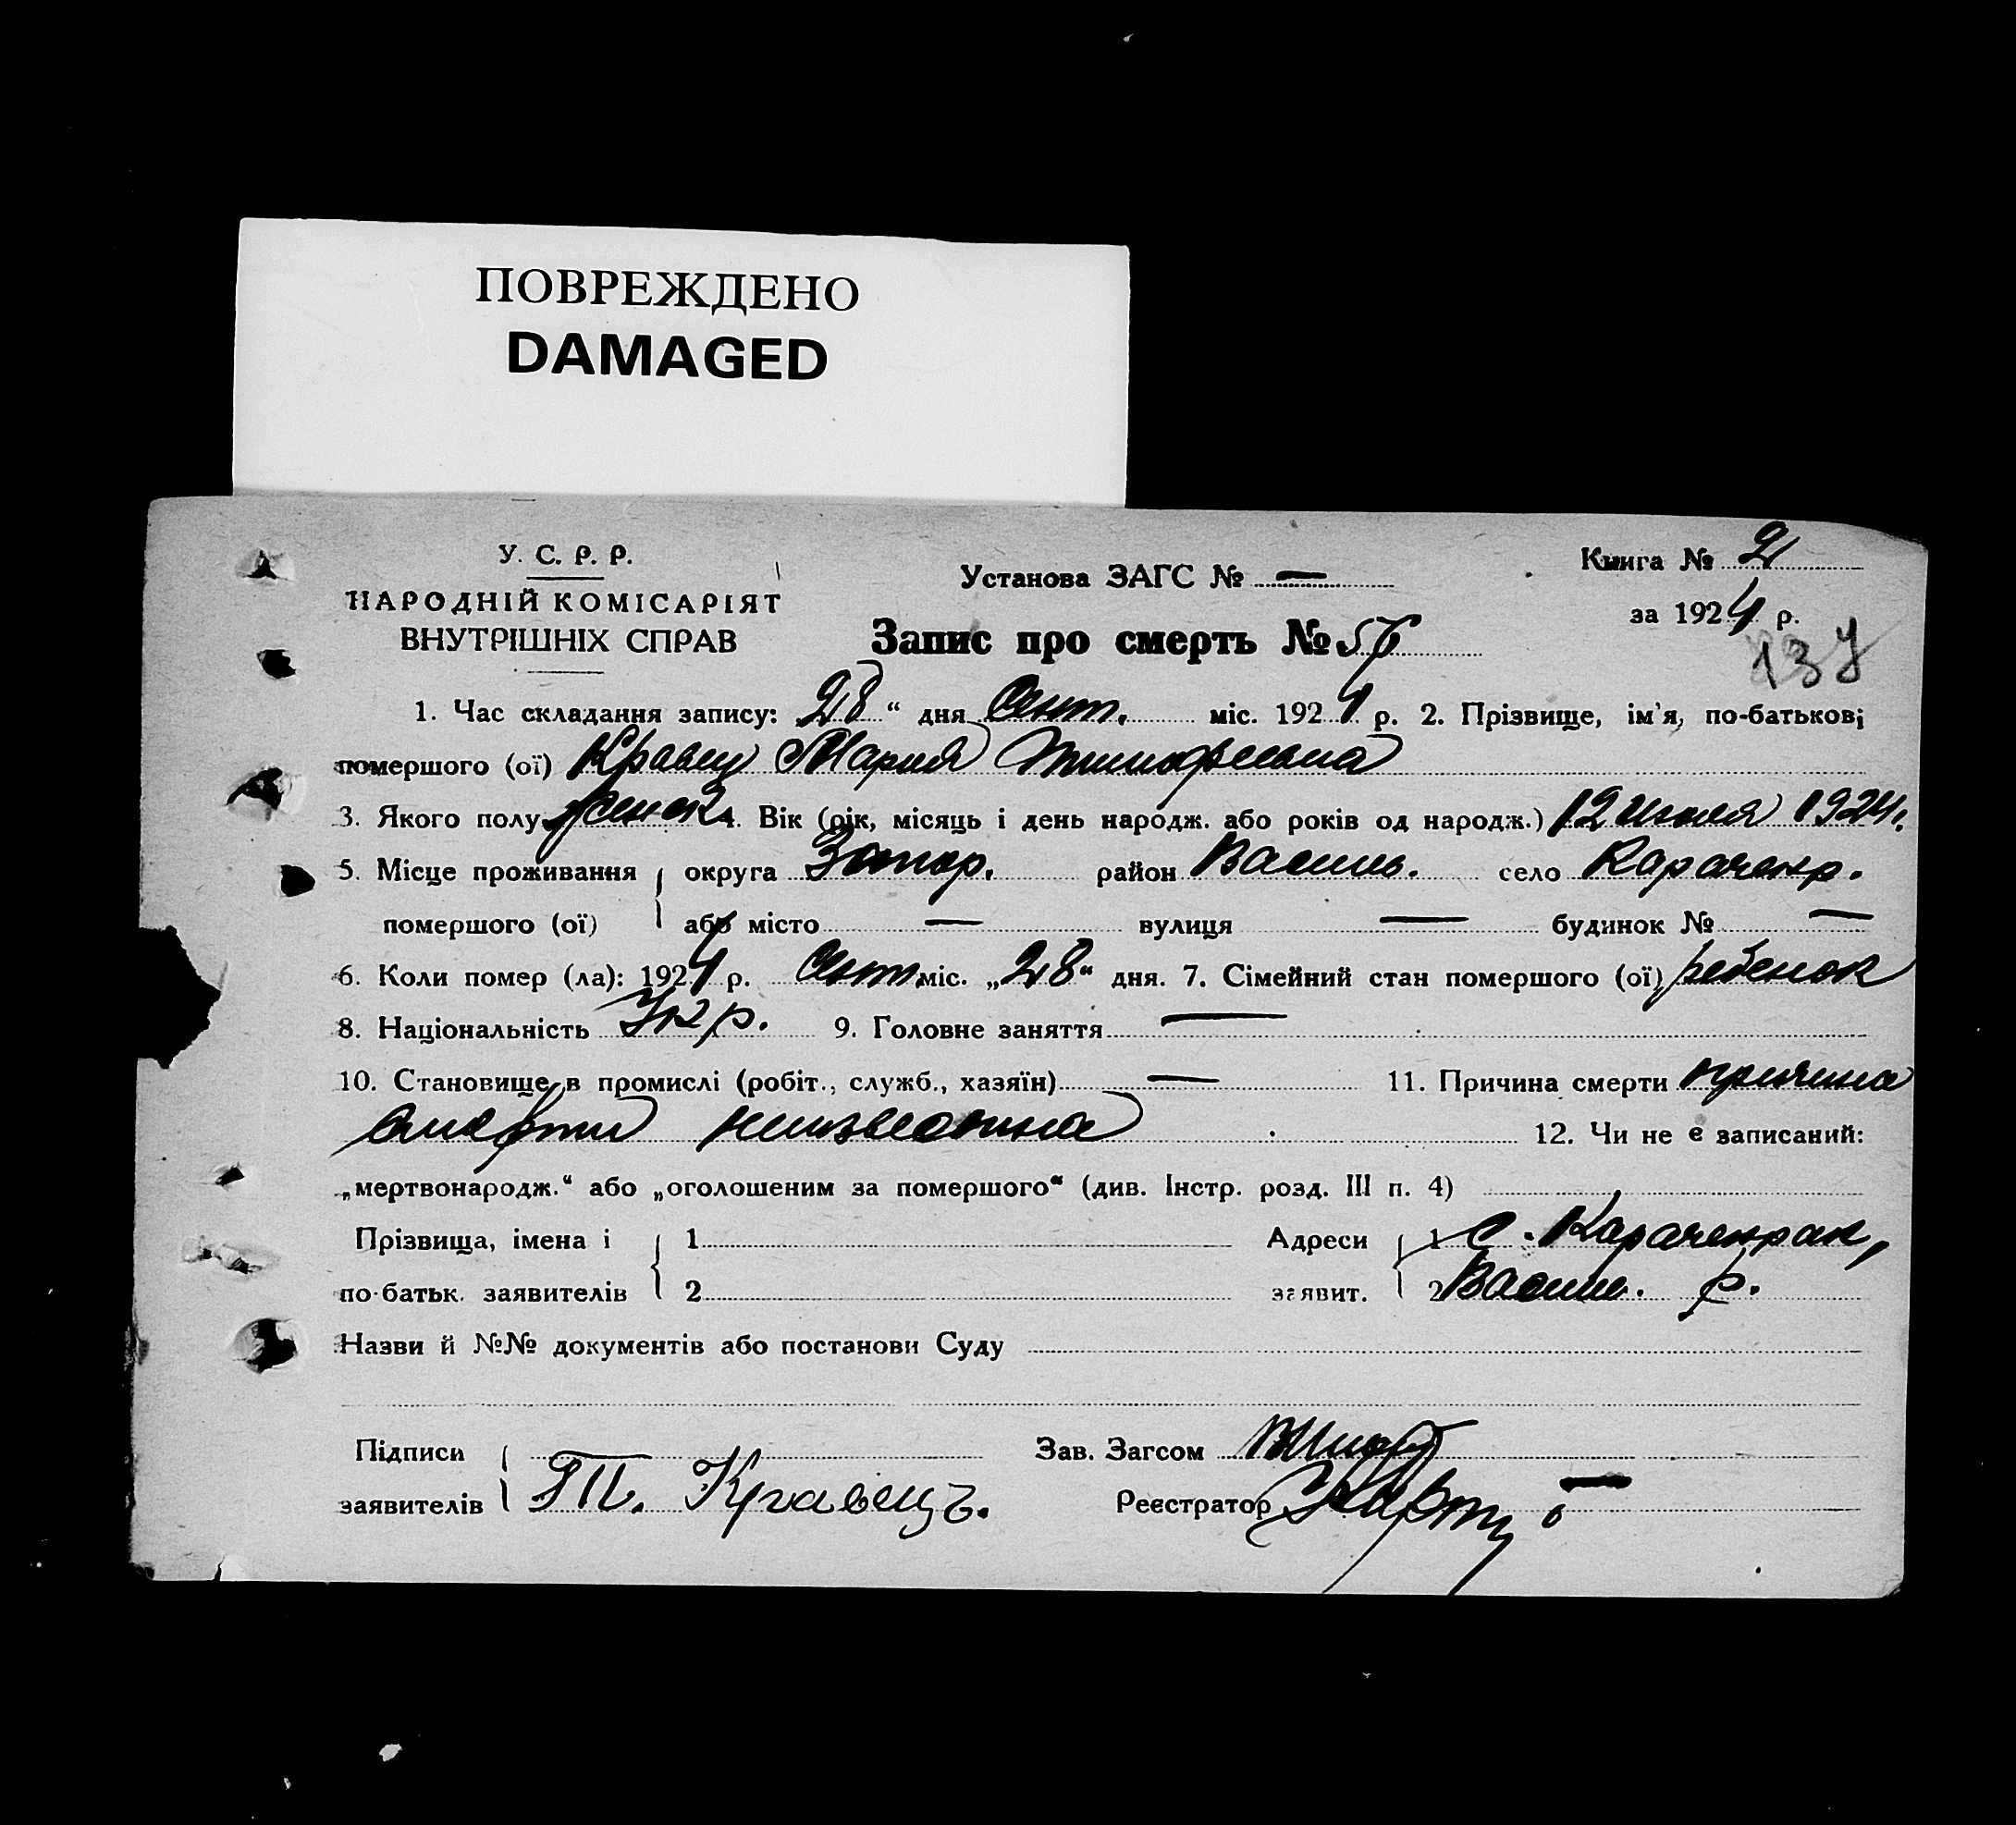 ПОВРЕЖДЕНО
DAMAGED
У. С. Р. Р.
НАРОДНІЙ КОМІСАРІЯТ
ВНУТРІШНІХ СПРАВ
Установа ЗАГС № —
Книга № 2
за 1924 р.
Запис про смерть №
137
1. Час складання запису: 28 “ дня Сент. міс. 1924 р. 2. Прізвище, ім'я, по-батькові
помершого (ої) Кравец Мария Тимофеевна
3. Якого полу женск. 4. Вік (рік, місяць і день народж. або років од народж.) 12 июля 1924г.
5. Місце проживання округа Запор. район Василь. село Карачекр.
помершого (ої) або місто — вулиця — будинок № —
6. Коли помер (ла): 1924 р. Сент. міс. „28“ дня. 7. Сімейний стан помершого (ої) ребенок
8. Національність Укр. 9. Головне заняття —
10. Становище в промислі (робіт., служб., хазяїн) — 11. Причина смерти причина
смерти неизвестна 12. Чи не є записаний:
„мертвонародж.“ або „оголошеним за помершого“ (див. Інстр. розд. III п. 4)
Прізвища, імена і 1 Адреси 1 С. Карачекрак,
по-батьк. заявителів 2 заявит. 2 Василь. р.
Назви й №№ документів або постанови Суду
Підписи Зав. Загсом
заявителів Т. Кравець. Реєстратор